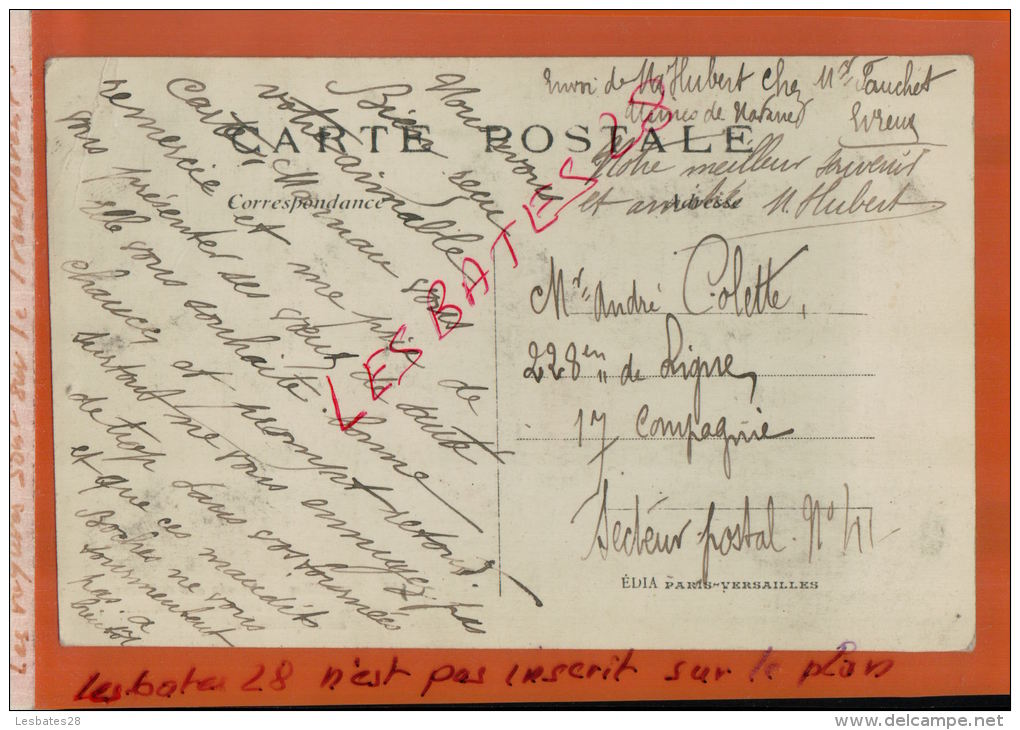 Envoi de Mr Hubert chez Mr Fauchet
Usines de Navarre
Evreux
CARTE POSTALE
Notre meilleur souvenir
et amitié M. Hubert
Correspondance
Adresse
Nous avons
Bien reçu
votre aimable
Carte. Maman vous
remercie et me prie de
vous présenter ses vœux de santé
elle vous souhaite bonne
chance et prompt retour.
surtout ne vous ennuyez pas
de trop dans vos tournées
et que ces maudits
Boches ne vous
tourmentent
pas à
bientôt
Mr André Colette,
228 en de Ligne,
17 Compagnie
Secteur postal. No 41-
ÉDIA PARIS-VERSAILLES
LES BATES 28
lesbates 28 n'est pas inscrit sur le plan
Lesbates28
http://www.delcampe.net